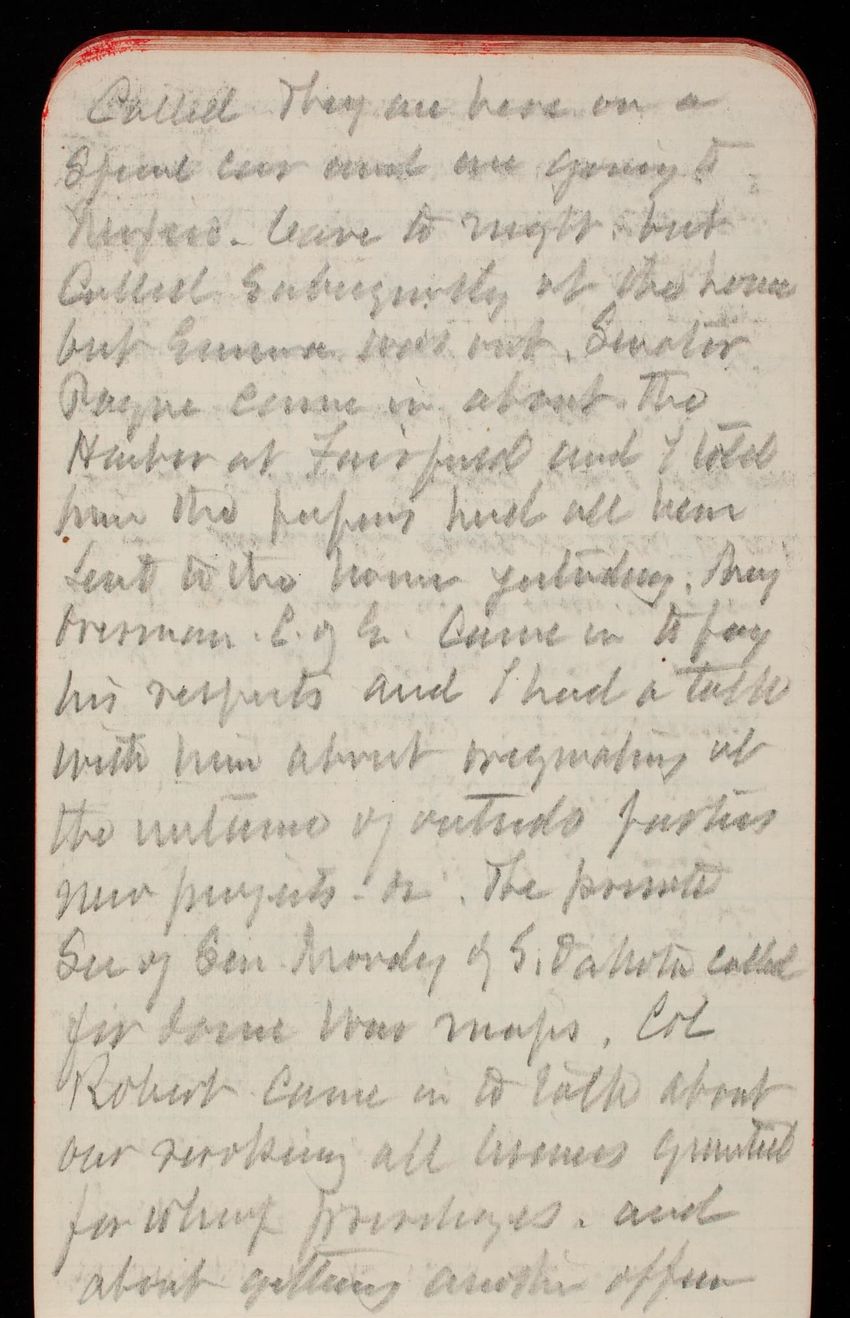 Called They are here on a
Special car and are going to
leave to night. but
Called Subsequently at the house
but Emma was out. Senator
Payne came in about the
Harbor at Fairport and I told
him the papers had all been
Sent to the house yesterday. Maj
C. of E. Came in to pay
his respects and I had a talk
with him about originating at
the instance of outside parties
new projects. The private
Sec of Sen Moody of S. Dakota called
for some War maps. Col
Robert came in to talk about
our revoking all licenses granted
for wharf privileges. and
about getting another officer